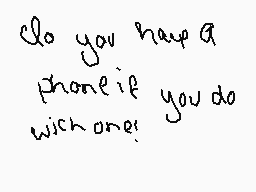 do you have a
phone if
you do
wich one?